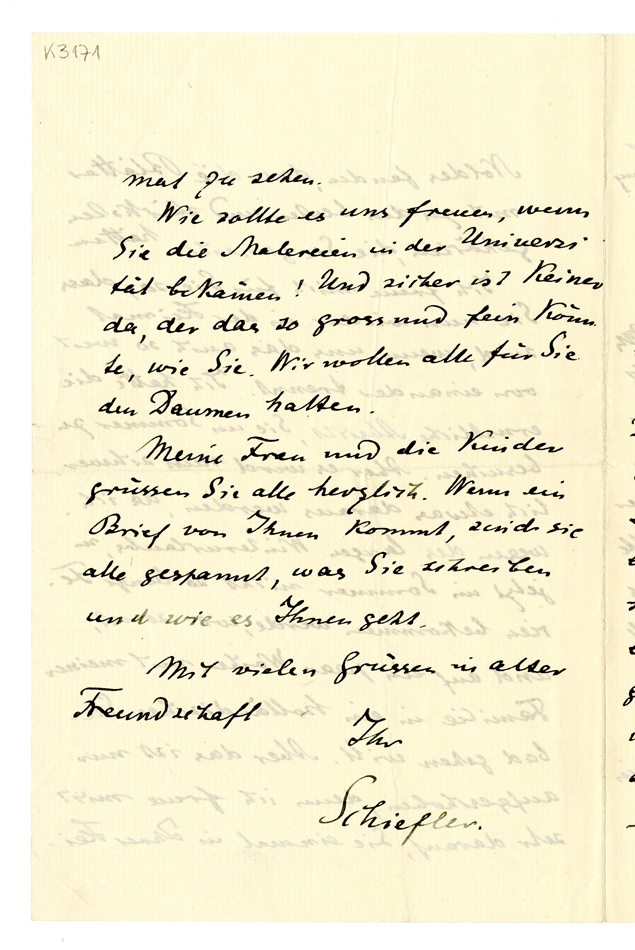 K3171
mal zu sehen.
Wie sollte es uns freuen, wenn
Sie die Malereien in der Universi
tät bekämen! Und sicher ist Keiner
da, der das so gross und fein könn
te, wie Sie. Wir wollen alle für Sie
den Daumen halten.
Meine Frau und die Kinder
grüssen Sie alle herzlich. Wenn ein
Brief von Ihnen kommt, sind sie
alle gespannt, was Sie schreiben
und wie es Ihnen geht.
Mit vielen Grüssen in alter
Freundschaft
Ihr
Schiefler.